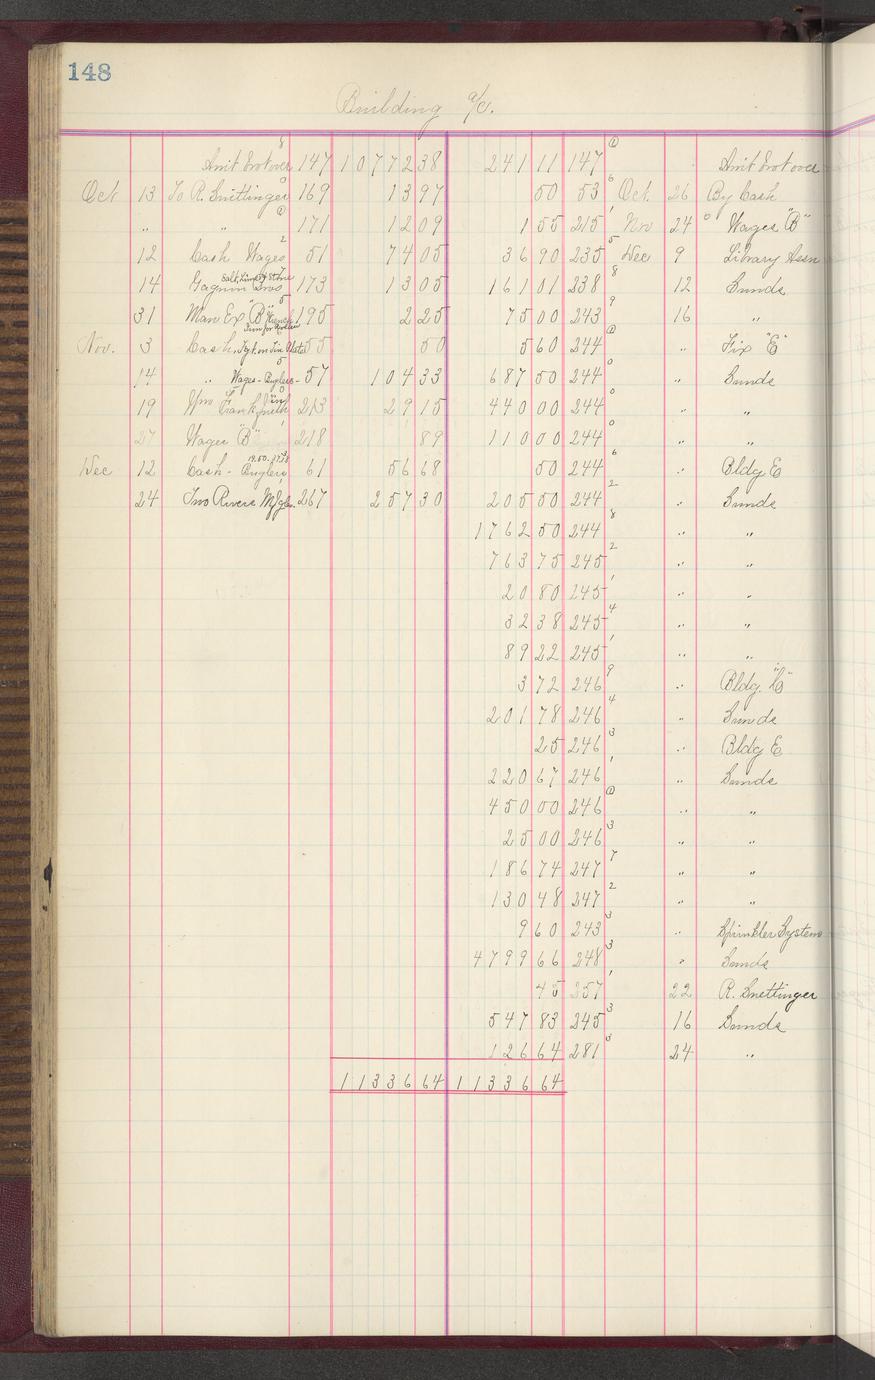 148
Building a/c.
Amt brot over 147 10772 38 241 11 147 Amt brot over
Oct 13 To R. Snittinger 169 13 97 50 53 Oct. 26 By Cash
" " 171 12 09 1 55 215 Nov 24 Wages "B"
12 Cash Wages 51 74 05 36 90 235 Dec 9 Library Assn
14 Gagnon Bros 173 13 05 161 01 238 12 Sunds
31 Man Ex "B" 195 2 25 75 00 243 16 "
Nov. 3 Cash, 55 50 5 60 244 " Fix "E"
14 " Wages - 57 104 33 687 50 244 " Sunds
19 Wm 213 29 15 440 00 244 " "
27 Wages "B" 218 89 110 00 244 " "
Dec 12 Cash - 61 56 68 50 244 " Bldg E
24 Two Rivers Mfg Co. 267 257 30 205 50 244 " Sunds
1762 50 244 " "
763 75 245 " "
20 80 245 " "
32 38 245 " "
89 22 245 " "
3 72 246 " Bldg.
201 78 246 " Sunds
25 246 " Bldg E
220 67 246 " Sunds
450 00 246 " "
25 00 246 " "
186 74 247 " "
130 48 247 " "
9 60 243 " Sprinkler System
4799 66 248 " Sunds
45 257 22 R. Snettinger
547 83 245 16 Sunds
126 64 281 24 "
11336 64 11336 64